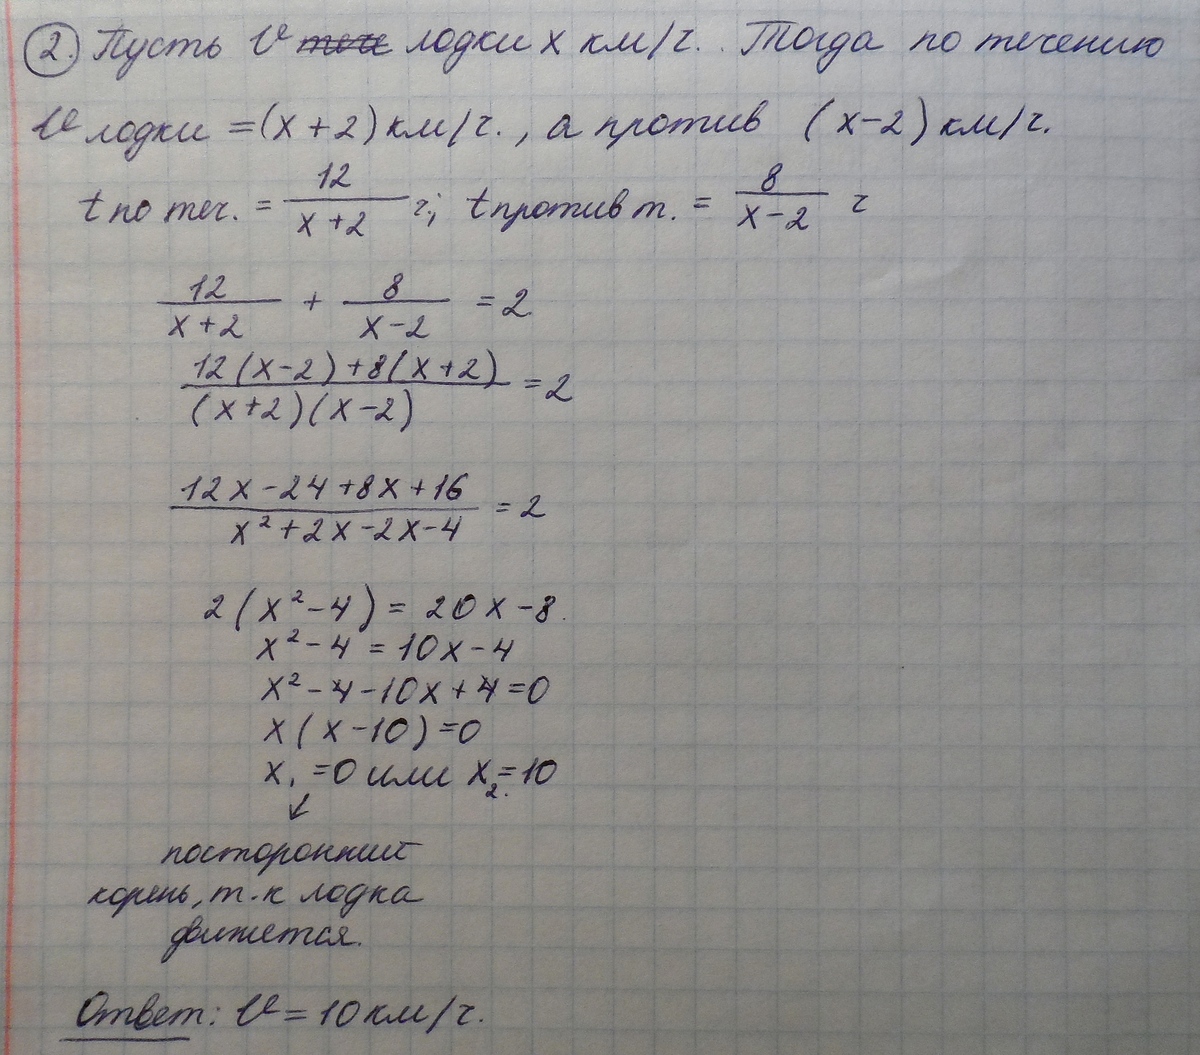 2. Пусть V лодки x км/ч. Тогда по течению
V лодки = (x+2) км/ч., а против (x-2) км/ч.
t по теч. = 12/(x+2) ч; t против т. = 8/(x-2) ч
12/(x+2) + 8/(x-2) = 2
(12(x-2)+8(x+2))/((x+2)(x-2)) = 2
(12x-24+8x+16)/(x²+2x-2x-4) = 2
2(x²-4) = 20x-8.
x²-4 = 10x-4
x²-4-10x+4=0
x(x-10)=0
x₁=0 или x₂=10
↙
посторонний
корень, т.к лодка
движется.
Ответ: V=10км/ч.